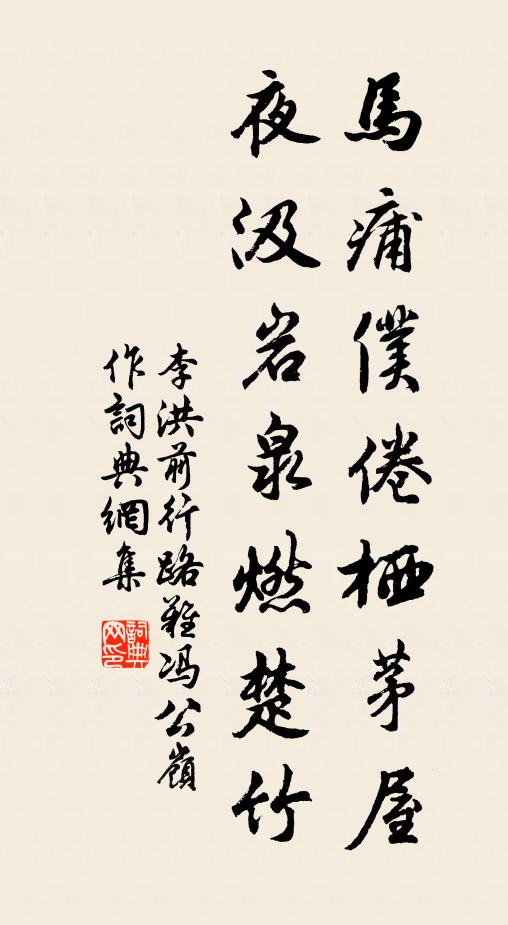 馬痡僕倦栖茅屋
夜汲岩泉燃楚竹
李洪前行路難馮公嶺
作詞典網集
詞典網印